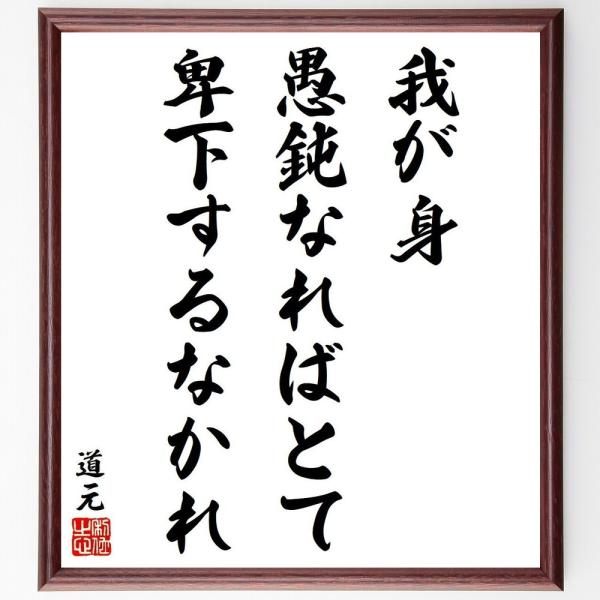 我が身
愚鈍なればとて
卑下するなかれ
道元